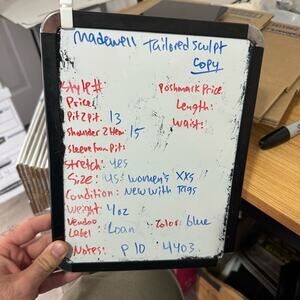 Madewell Tailored Sculpt
Copy
Style#:
Poshmark Price:
Price:
Length:
Pit 2 Pit: 13
Waist:
Shoulder 2 Hem: 15
Sleeve from Pit:
Stretch: yes
Size: US Women's XXS
Condition: New With Tags
Weight: 4oz
Vendoo Label: Loan
Color: blue
Notes: P10 4403